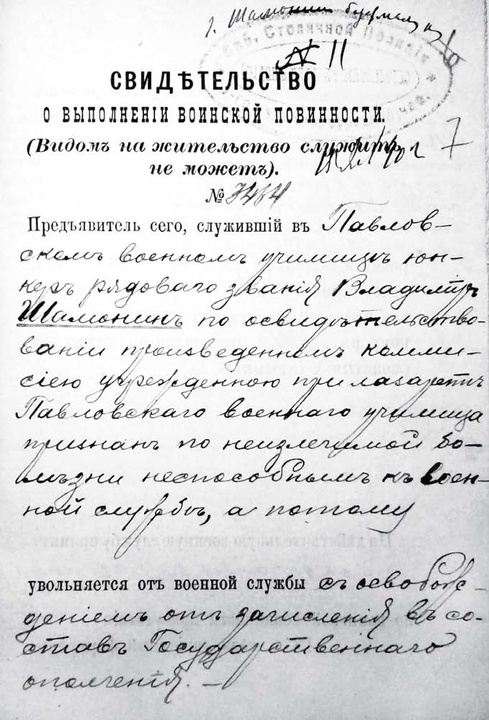 г. Шамонин
Столичной Полиціи
№ 11
СВИДѢТЕЛЬСТВО
О ВЫПОЛНЕНІИ ВОИНСКОЙ ПОВИННОСТИ.
(Видомъ на жительство служить
не можетъ).
7
№ 3484
Предъявитель сего, служившій въ Павлов-
скомъ военномъ училищѣ юн-
керъ рядоваго званія Владиміръ
Шамонинъ по освидѣтельство-
ваніи произведенномъ комми-
сіею учрежденною при лазаретѣ
Павловскаго военнаго училища
признанъ по неизлечимой бо-
лѣзни неспособнымъ къ воен-
ной службѣ, а потому
увольняется отъ военной службы съ освобож-
деніемъ отъ зачисленія въ со-
ставъ Государственнаго
ополченія. —